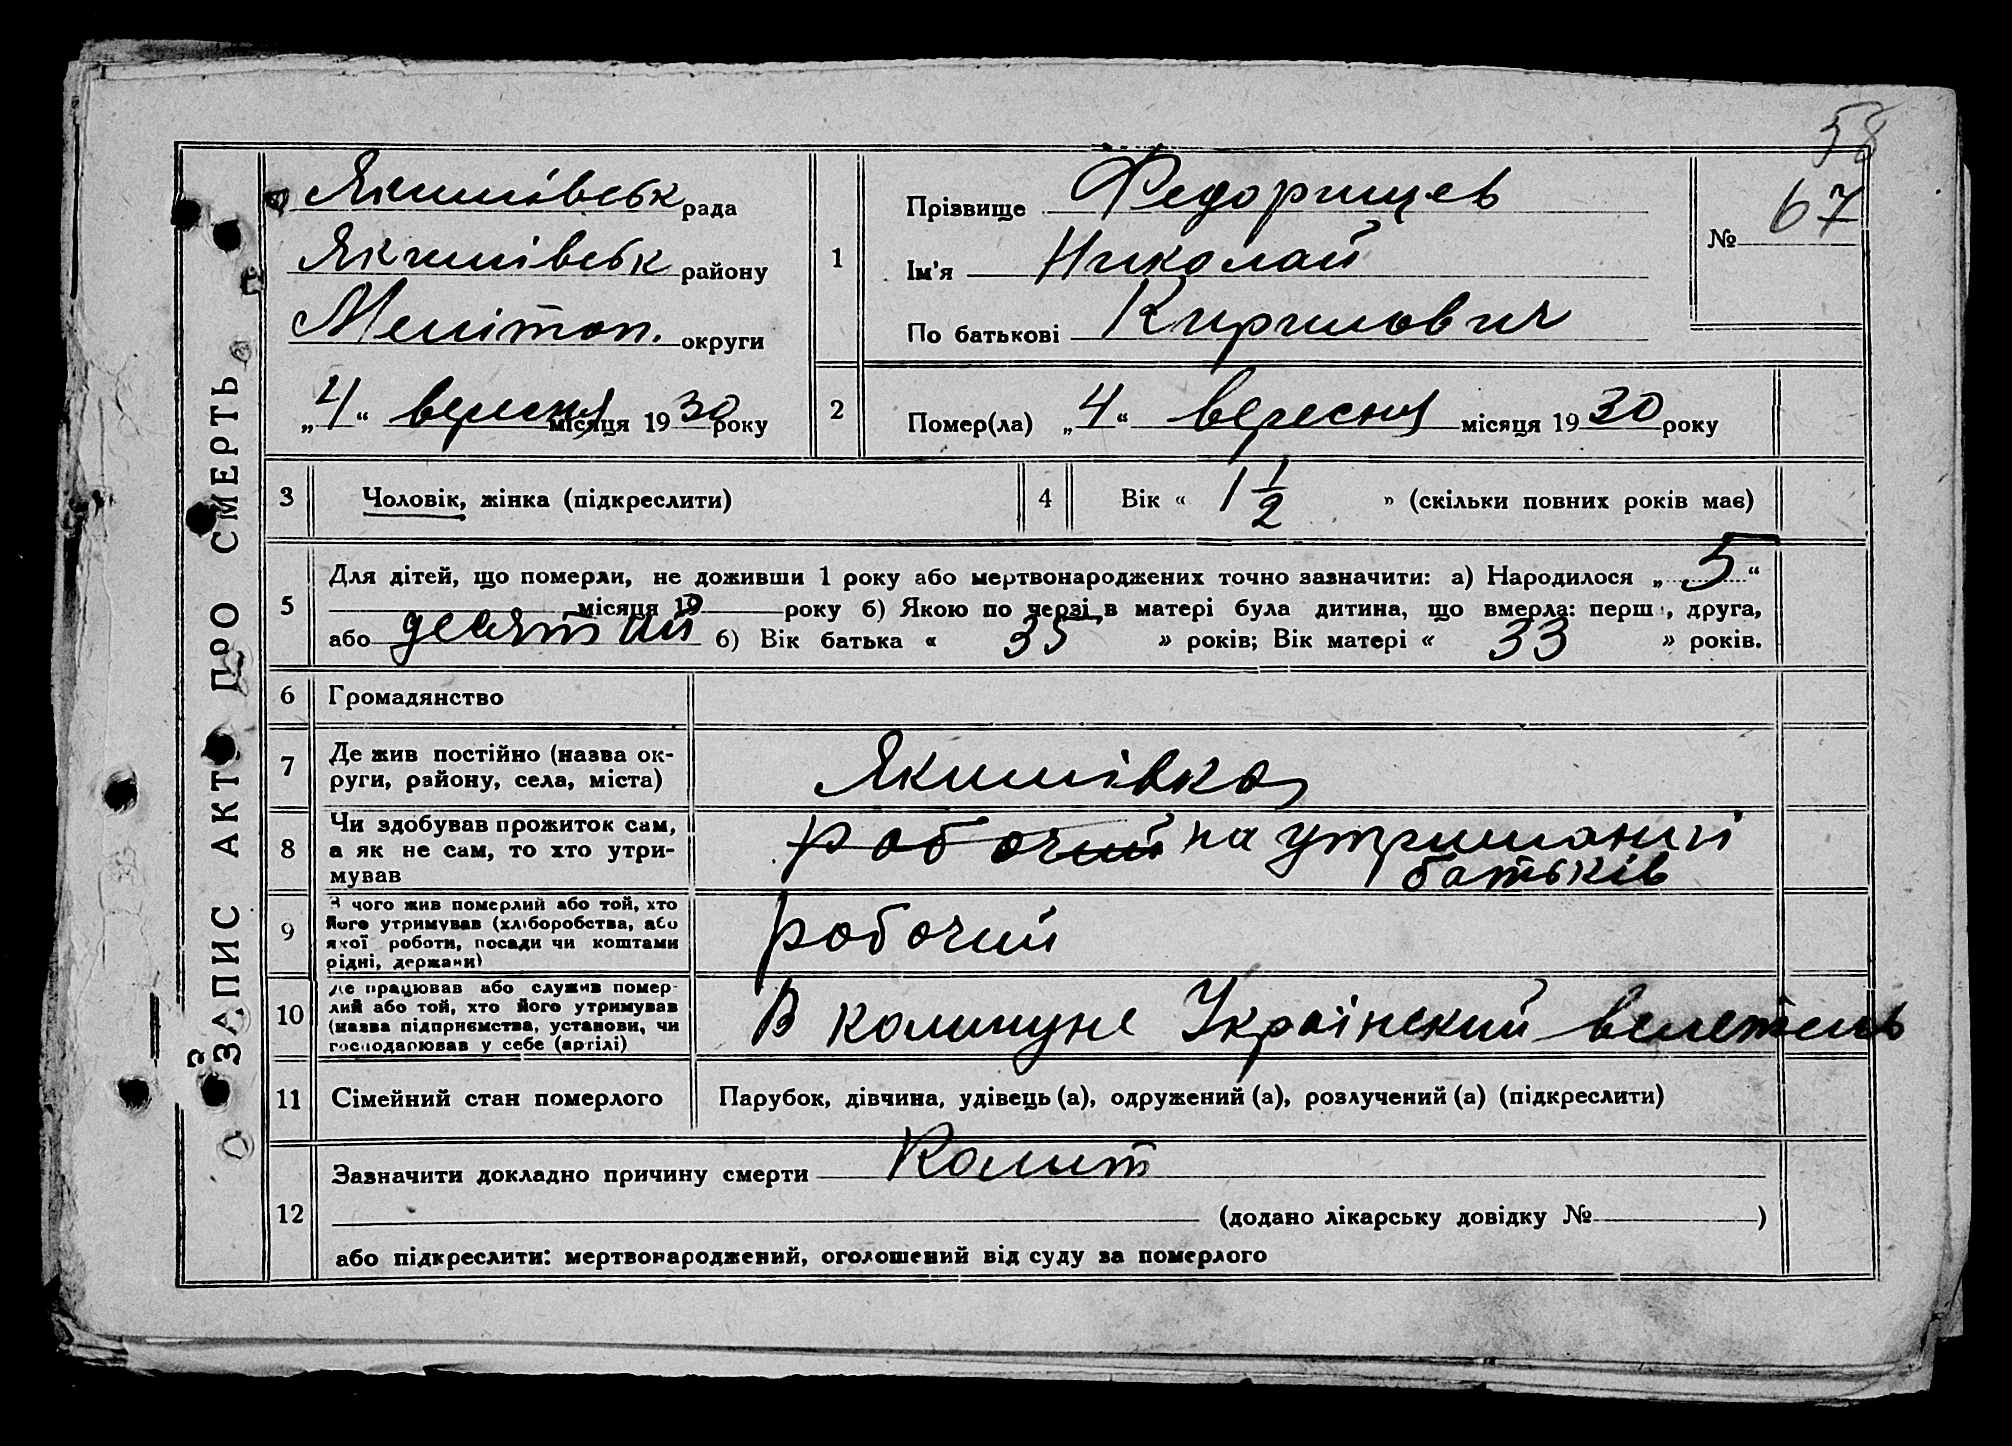 58
ЗАПИС АКТ ПРО СМЕРТЬ
Якимівськ рада
Якимівськ району
Меліто́п. округи
„4“ вересня місяця 1930 року
1
Прізвище Федорищев
Ім'я Николай
По батькові Кирилович
№ 67
2
Помер(ла) „4“ вересня місяця 1930 року
3 Чоловік, жінка (підкреслити)
4 Вік « 1 1/2 » (скільки повних років має)
5
Для дітей, що померли, не доживши 1 року або мертвонароджених точно зазначити: а) Народилося „5“
місяця 19 року б) Якою по черзі в матері була дитина, що вмерла: перш, друга,
або б) Вік батька « 35 » років; Вік матері « 33 » років.
6 Громадянство
7
Де жив постійно (назва ок-
руги, району, села, міста)
Якимівка
8
Чи здобував прожиток сам,
а як не сам, то хто утри-
мував
робочий на утриманні
батьків
9
З чого жив померлий або той, хто
його утримував (хліборобства, або
якої роботи, посади чи коштами
рідні, держави)
робочий
10
Де працював або служив помер-
лий або той, хто його утримував
(назва підприємства, установи, чи
господарював у себе (артілі)
В комуне Український велетень
11 Сімейний стан померлого
Парубок, дівчина, удівець (а), одружений (а), розлучений (а) (підкреслити)
12
Зазначити докладно причину смерти Колит
(додано лікарську довідку № )
або підкреслити: мертвонароджений, оголошений від суду за померлого